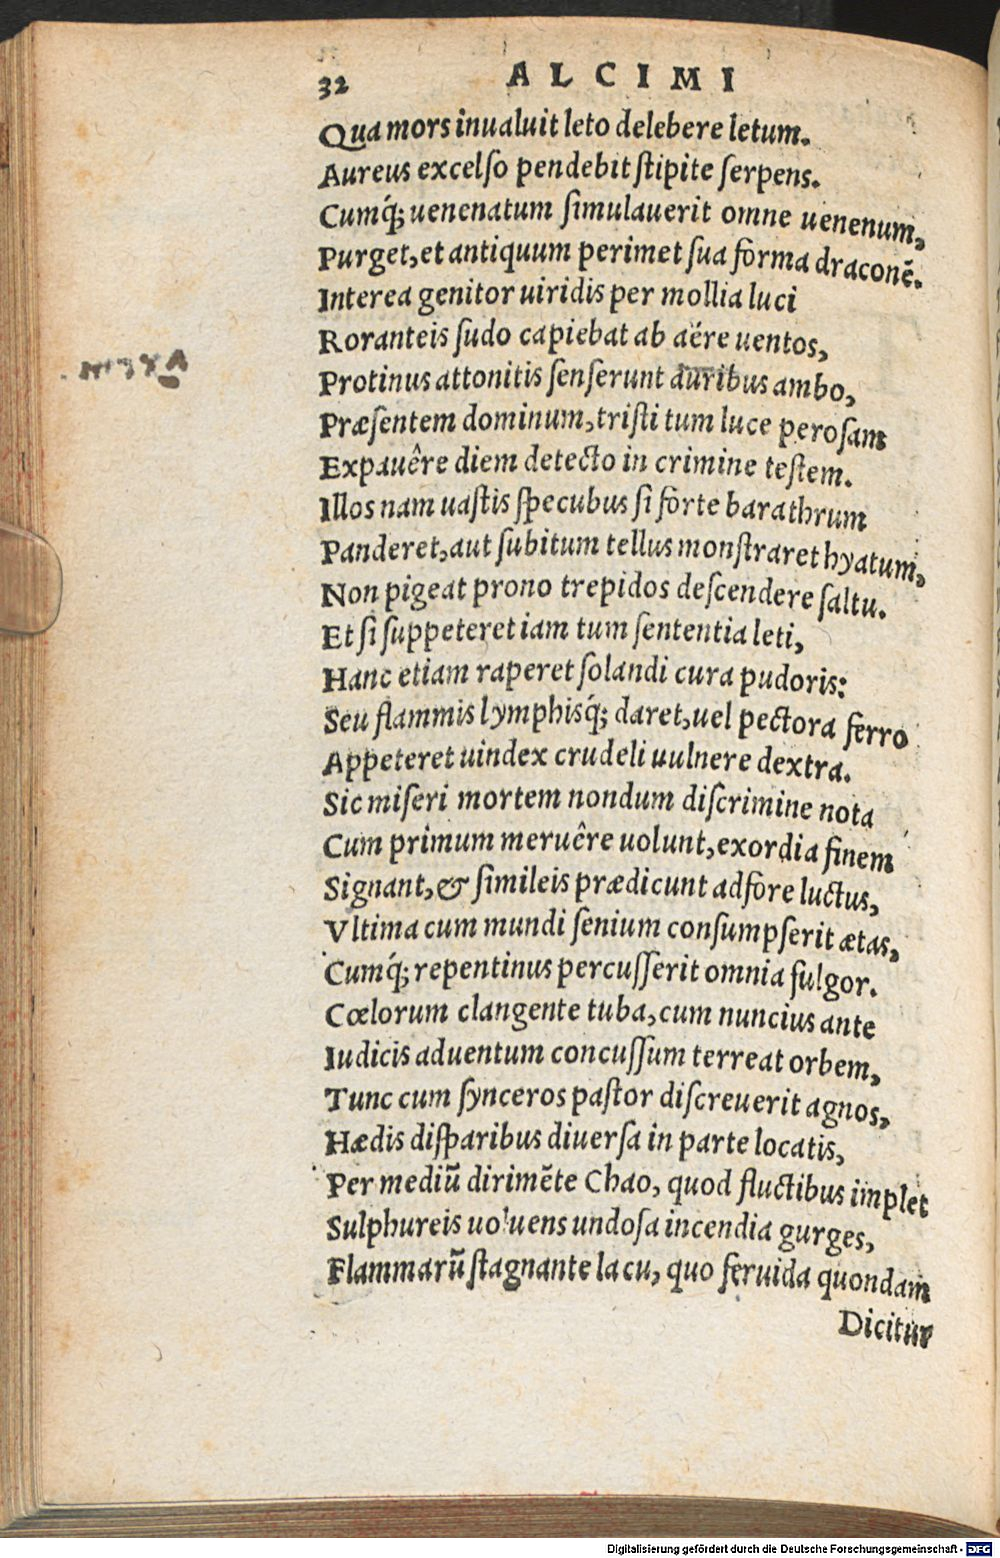 32 ALCIMI
Qua mors inualuit leto delebere letum.
Aureus excelſo pendebit ſtipite ſerpens.
Cumq́; uenenatum ſimulauerit omne uenenum,
Purget, et antiquum perimet ſua forma draconē.
Interea genitor uiridis per mollia luci
Roranteis ſudo capiebat ab aëre uentos,
Protinus attonitis ſenſerunt auribus ambo,
Præſentem dominum, triſti tum luce peroſam
Expauêre diem detecto in crimine teſtem.
Illos nam uaſtis ſpecubus ſi forte barathrum
Panderet, aut ſubitum tellus monſtraret hyatum,
Non pigeat prono trepidos deſcendere ſaltu.
Et ſi ſuppeteret iam tum ſententia leti,
Hanc etiam raperet ſolandi cura pudoris:
Seu flammis lymphisq́; daret, uel pectora ferro
Appeteret uindex crudeli uulnere dextra.
Sic miſeri mortem nondum diſcrimine nota
Cum primum meruêre uolunt, exordia finem
Signant, & ſimileis prædicunt adfore luctus,
Vltima cum mundi ſenium conſumpſerit ætas,
Cumq́; repentinus percuſſerit omnia fulgor.
Cœlorum clangente tuba, cum nuncius ante
Iudicis aduentum concuſſum terreat orbem,
Tunc cum ſynceros paſtor diſcreuerit agnos,
Hædis diſparibus diuerſa in parte locatis,
Per mediū dirimēte Chao, quod fluctibus implet
Sulphureis uoluens undoſa incendia gurges,
Flammarū ſtagnante lacu, quo feruida quondam
Dicitur
Digitalisierung gefördert durch die Deutsche Forschungsgemeinschaft - DFG